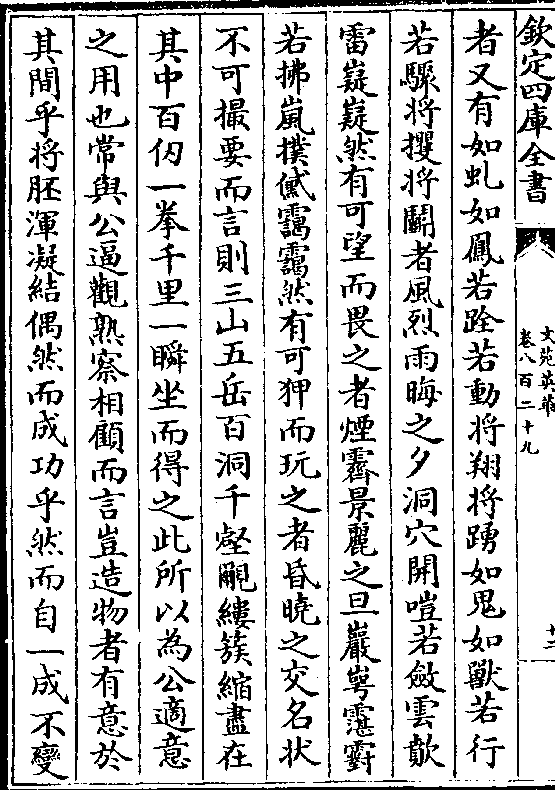 欽定四庫全書
文苑英華
卷八百二十九
十二
者又有如虬如鳳若跧若動將翔將踴如鬼如獸若行
若驟將攫將鬬者風烈雨晦之夕洞穴開嗑若歛雲歕
雷嶷嶷然有可望而畏之者煙霽景麗之旦巖崿霮䨴
若拂嵐撲黛靄靄然有可狎而玩之者昏曉之交名狀
不可撮要而言則三山五岳百洞千壑覼縷簇縮盡在
其中百仞一拳千里一瞬坐而得之此所以為公適意
之用也常與公逼觀熟察相顧而言豈造物者有意於
其間乎將胚渾凝結偶然而成功乎然而自一成不變